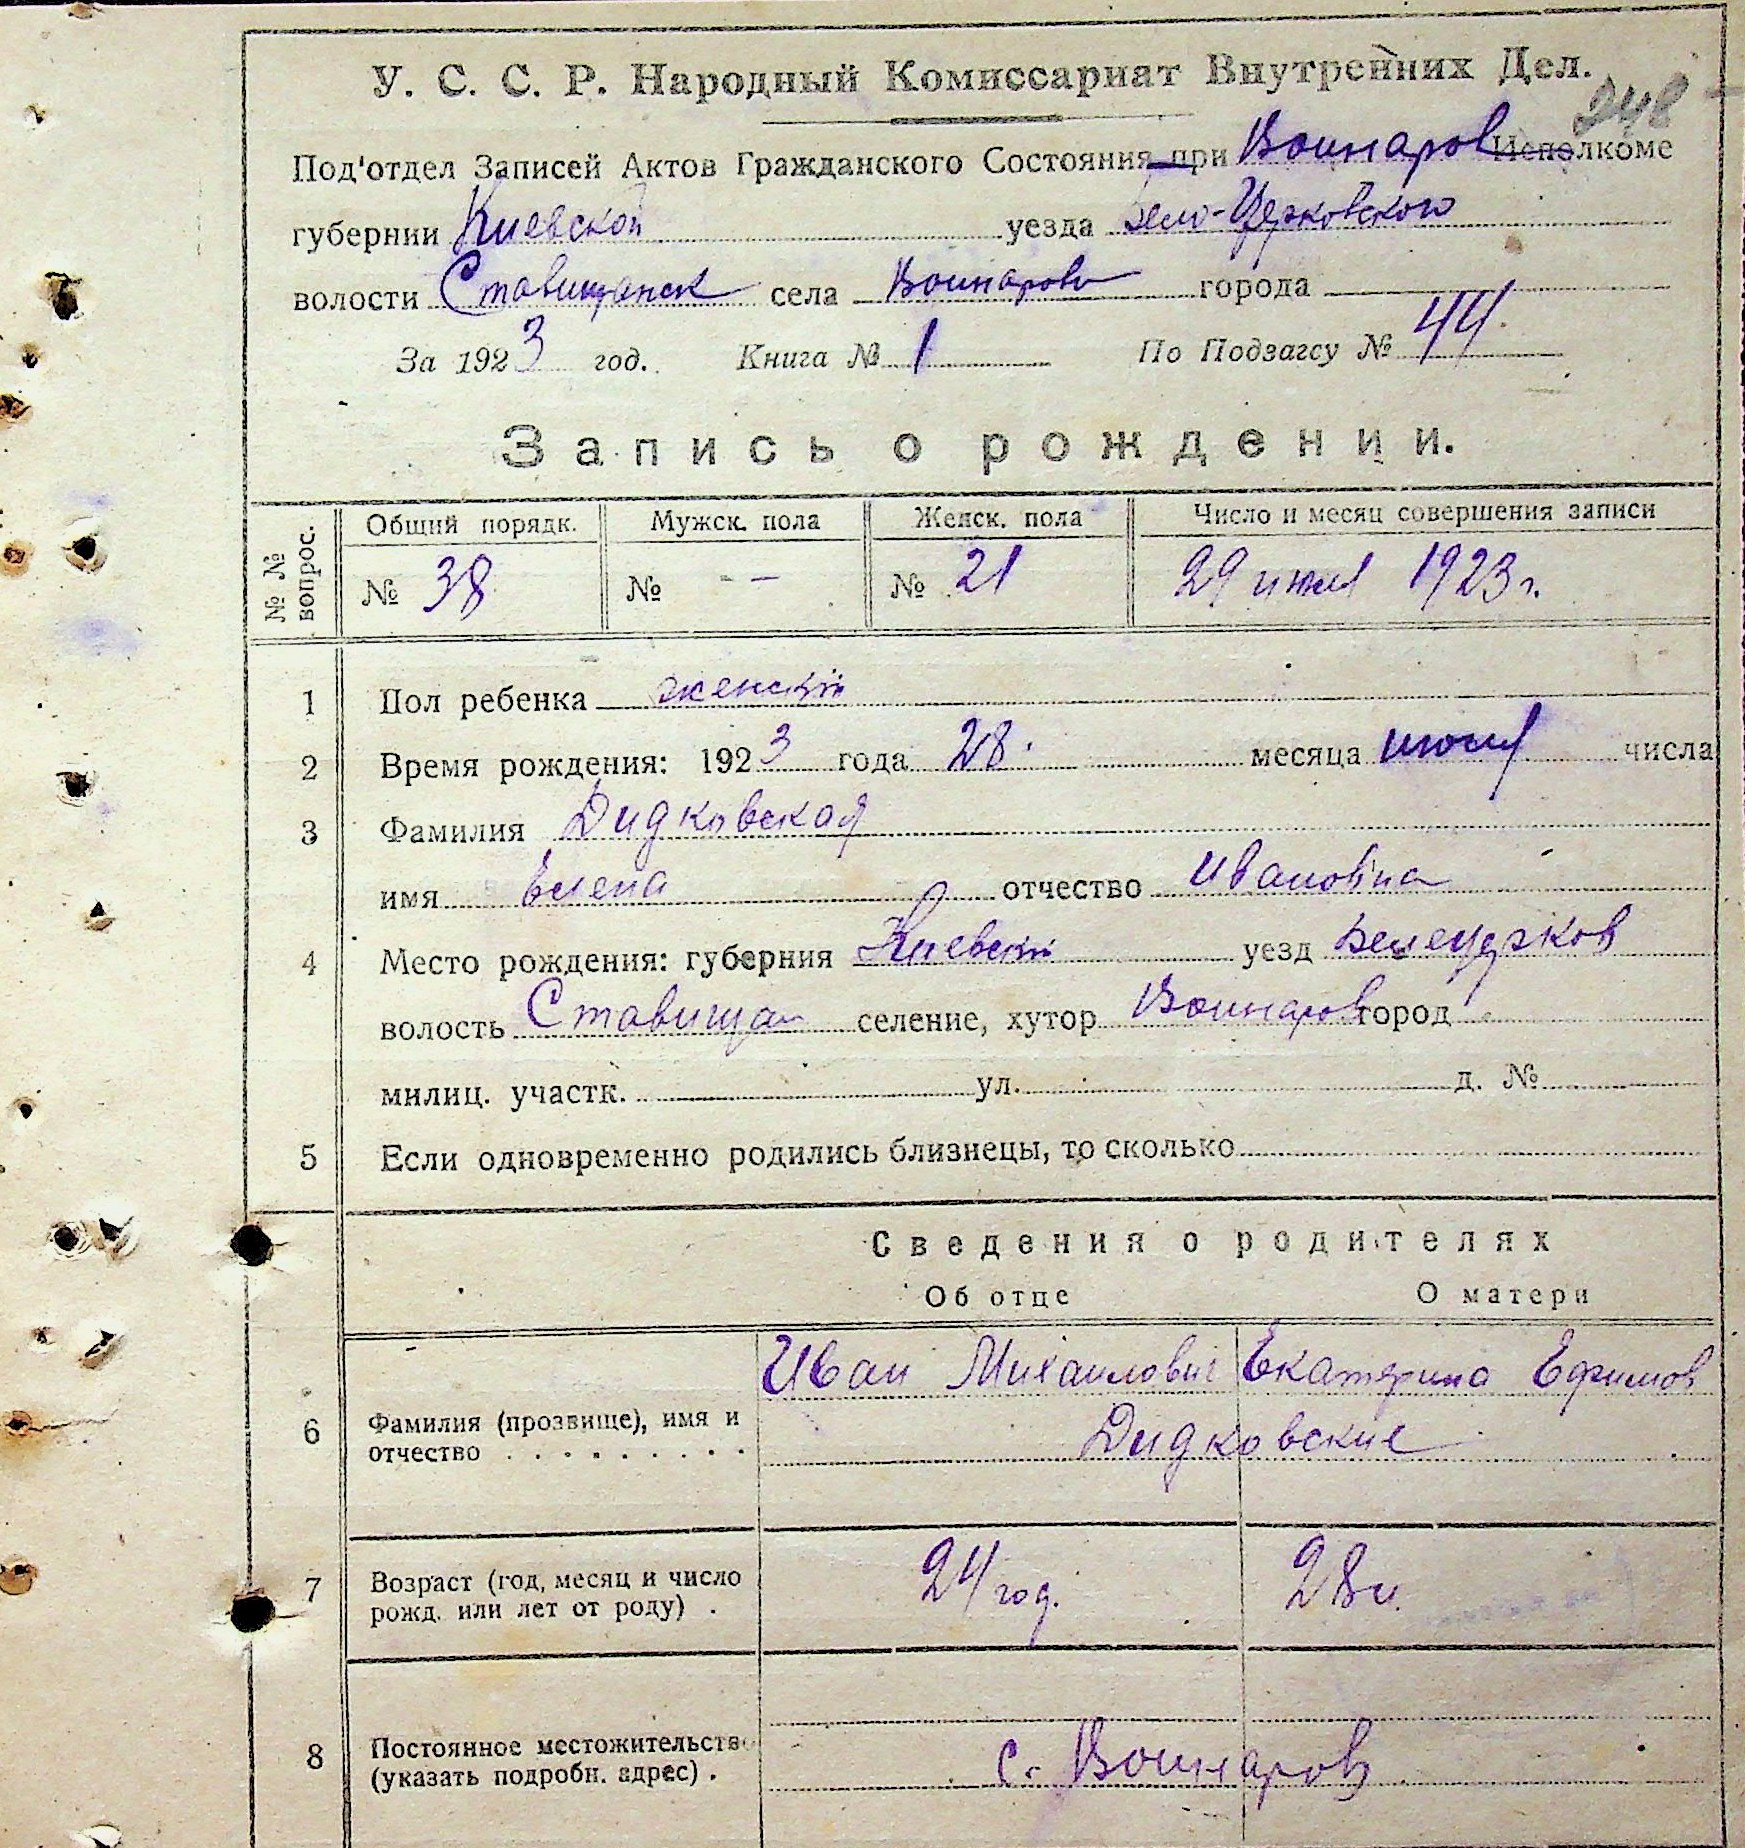 У. С. С. Р. Народный Комиссариат Внутренних Дел.
248
Под'отдел Записей Актов Гражданского Состояния при Воинаров Исполкоме
губернии Киевской уезда Бело-Церковского
волости Ставищанск села Воинаровк города
За 1923 год. Книга № 1 По Подзагсу № 44
Запись о рождении.
№ № вопрос.
Общий порядк. Мужск. пола Женск. пола Число и месяц совершения записи
№ 38 № - № 21 29 июля 1923 г.
1 Пол ребенка женский
2 Время рождения: 1923 года 28 месяца июля числа
3 Фамилия Дидковская
имя Елена отчество Ивановна
4 Место рождения: губерния Киевск уезд Белецерков
волость Ставищан селение, хутор Воинаров город
милиц. участк. ул. д. №
5 Если одновременно родились близнецы, то сколько
Сведения о родителях
Об отце О матери
Иван Михаилович Екатерина Ефимов
6 Фамилия (прозвище), имя и отчество Дидковские
7 Возраст (год, месяц и число рожд. или лет от роду) . 24 год. 28 л.
8 Постоянное местожительств (указать подробн. адрес) . с. Воинаров